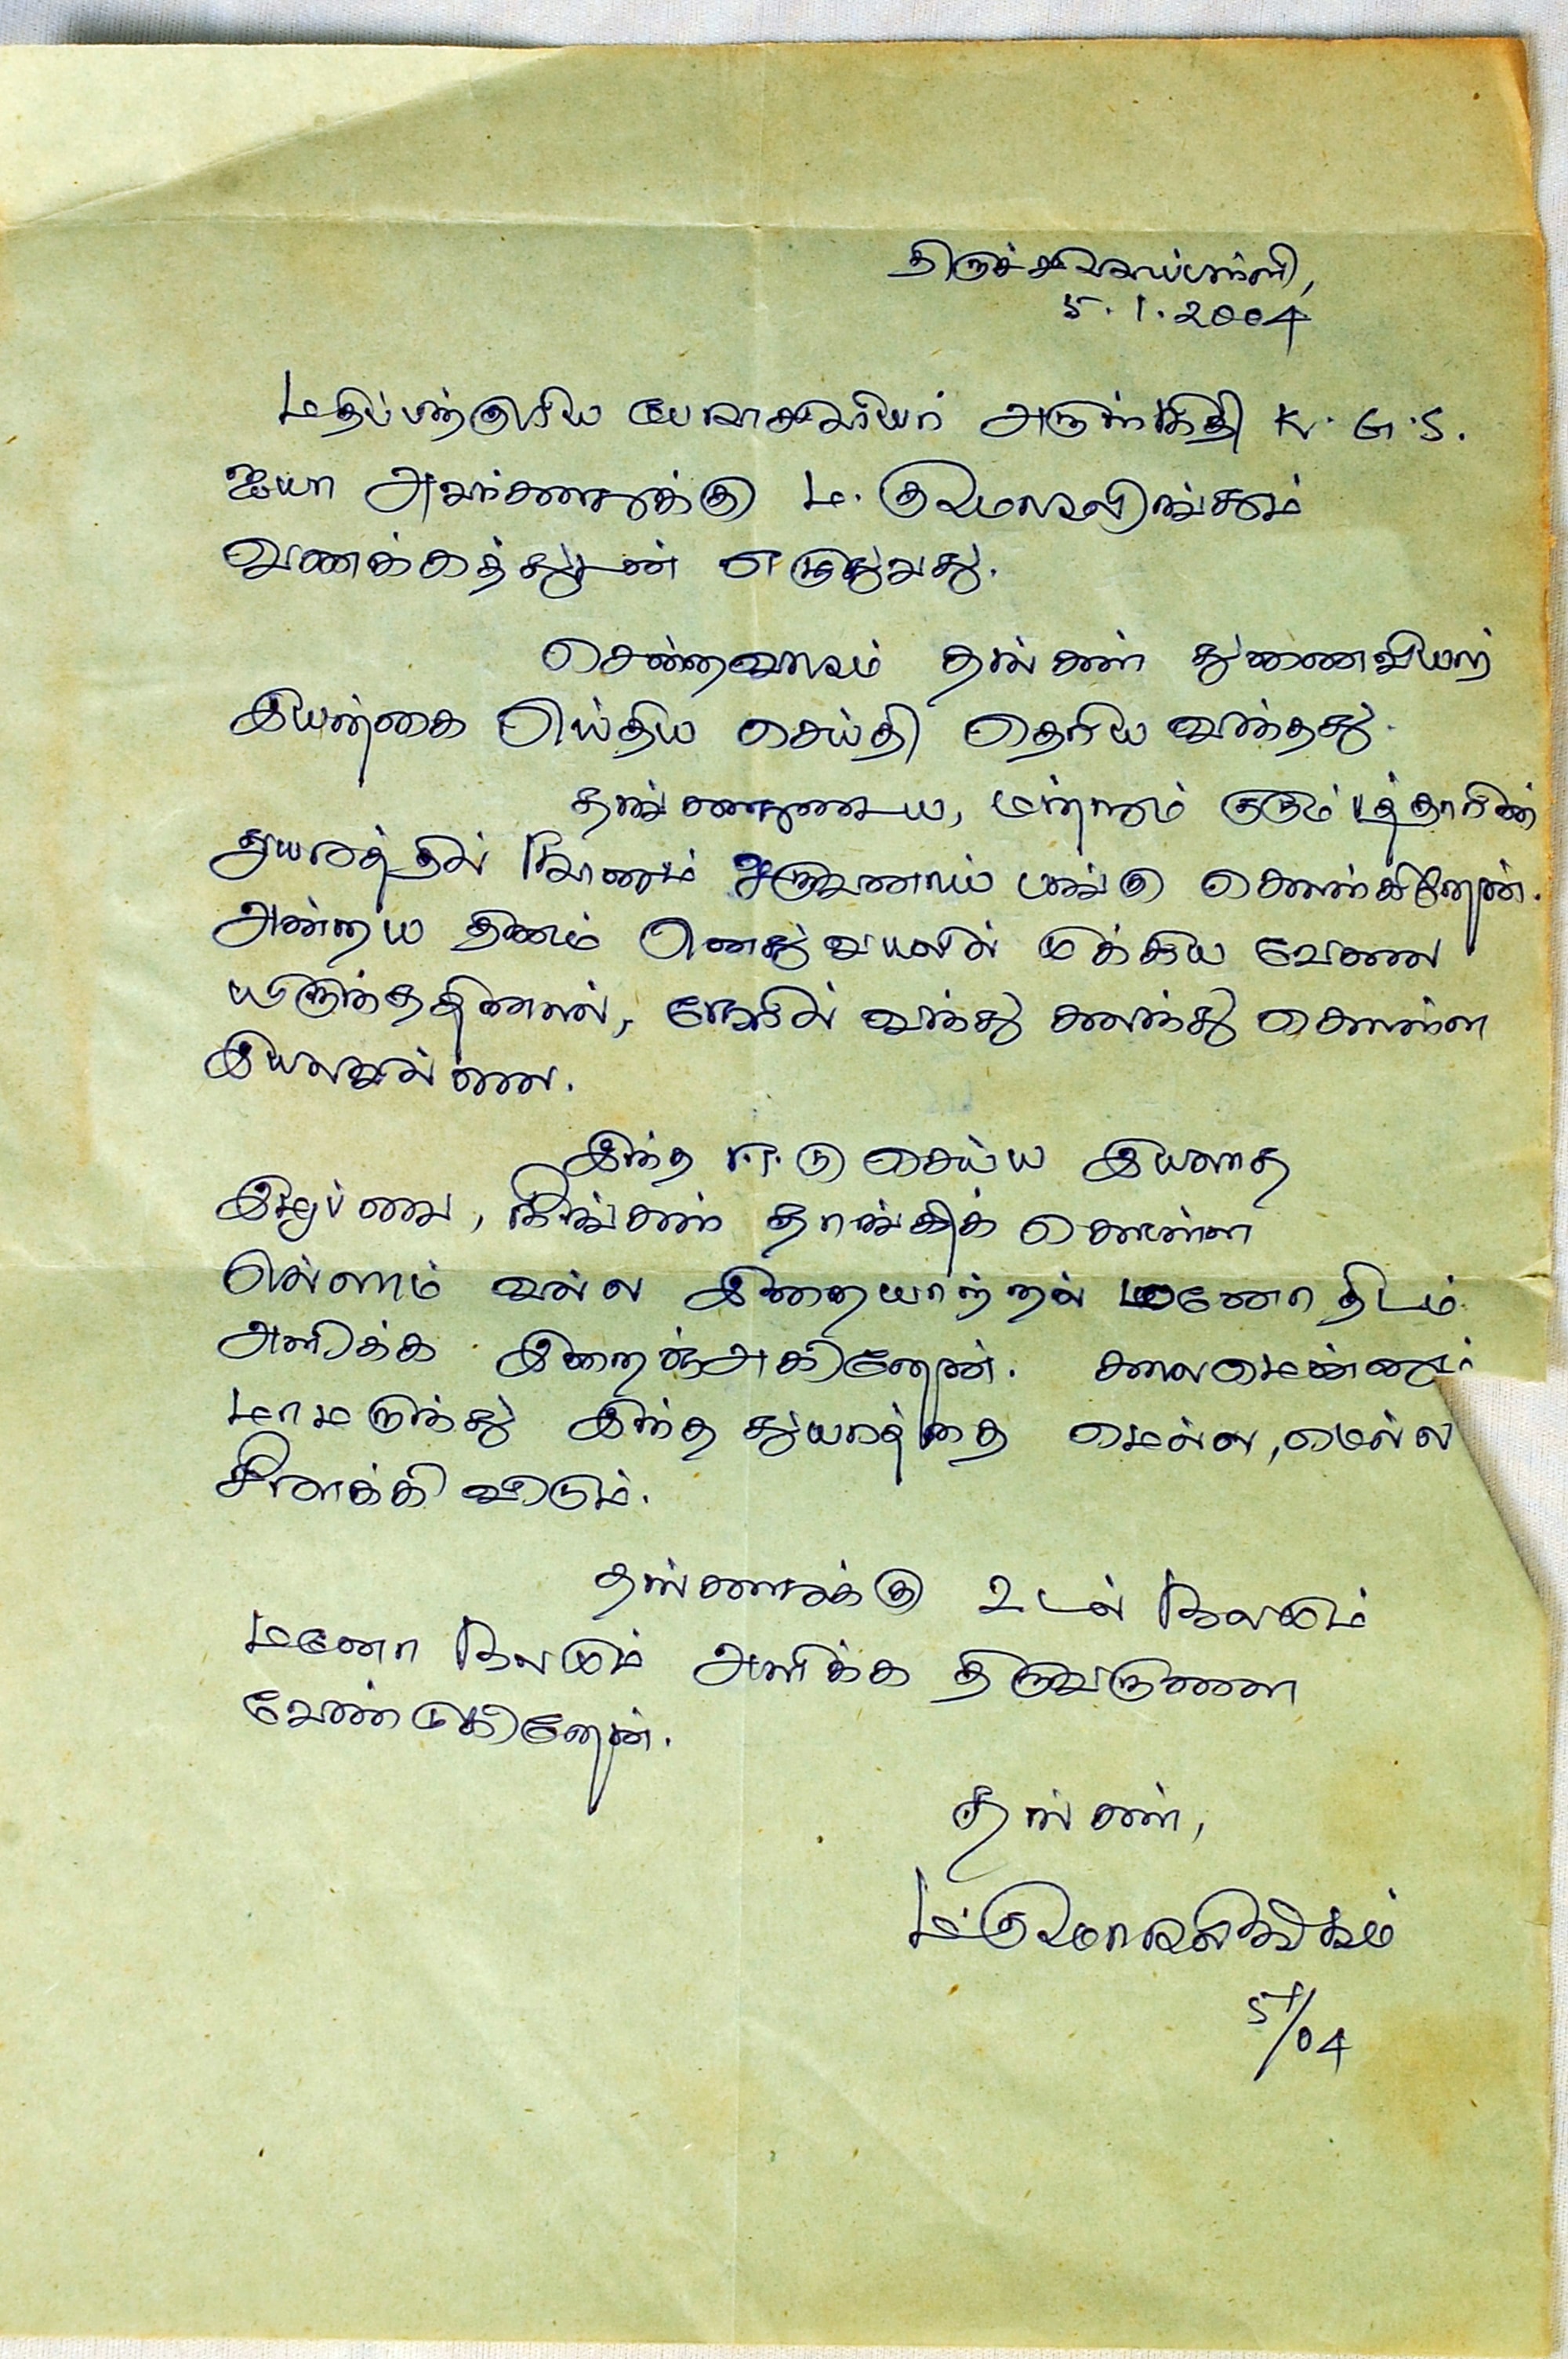 திருச்சிராப்பள்ளி,
5.1.2004
மதிப்பிற்குரிய பேராசிரியர் அருள்நிதி K.G.S.
ஐயா அவர்களுக்கு ம. குமாரலிங்கம்
வணக்கத்துடன் எழுதுவது.
சென்றவாரம் தங்கள் துணைவியார்
இயற்கை எய்திய செய்தி தெரிய வந்தது.
தங்களுடைய, மற்றும் குடும்பத்தாரின்
துயரத்தில் நானும் ஒருவனாய் பங்கு கொள்கிறேன்.
அன்றைய தினம் எனது வயலில் முக்கிய வேலை
யிருந்ததினால், நேரில் வந்து கலந்து கொள்ள
இயலவில்லை.
இந்த ஈடு செய்ய இயலாத
இழப்பை, நீங்கள் தாங்கிக் கொள்ள
எல்லாம் வல்ல இறையாற்றல் மனோதிடம்
அளிக்க இறைஞ்சுகிறேன். காலமென்னும்
மாமருந்து இந்த துயரத்தை மெல்ல, மெல்ல
சீராக்கி விடும்.
தங்களுக்கு உடல் நலமும்
மனோ நலமும் அளிக்க திருவருளை
வேண்டுகிறேன்.
தங்கள்,
ம. குமாரலிங்கம்
5/1/04